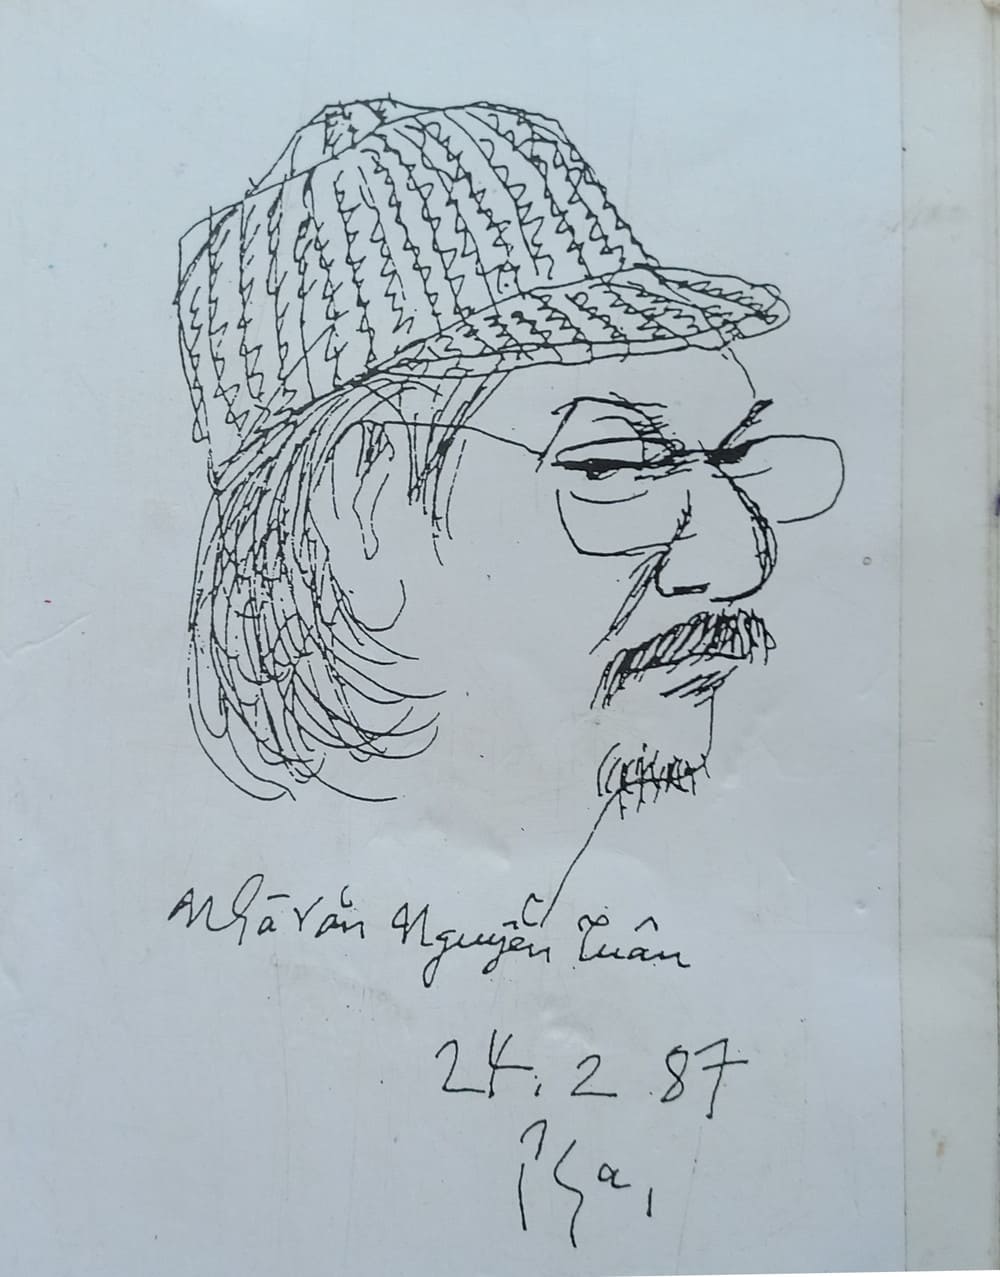 Nhà văn Nguyễn Tuân
24. 2 87